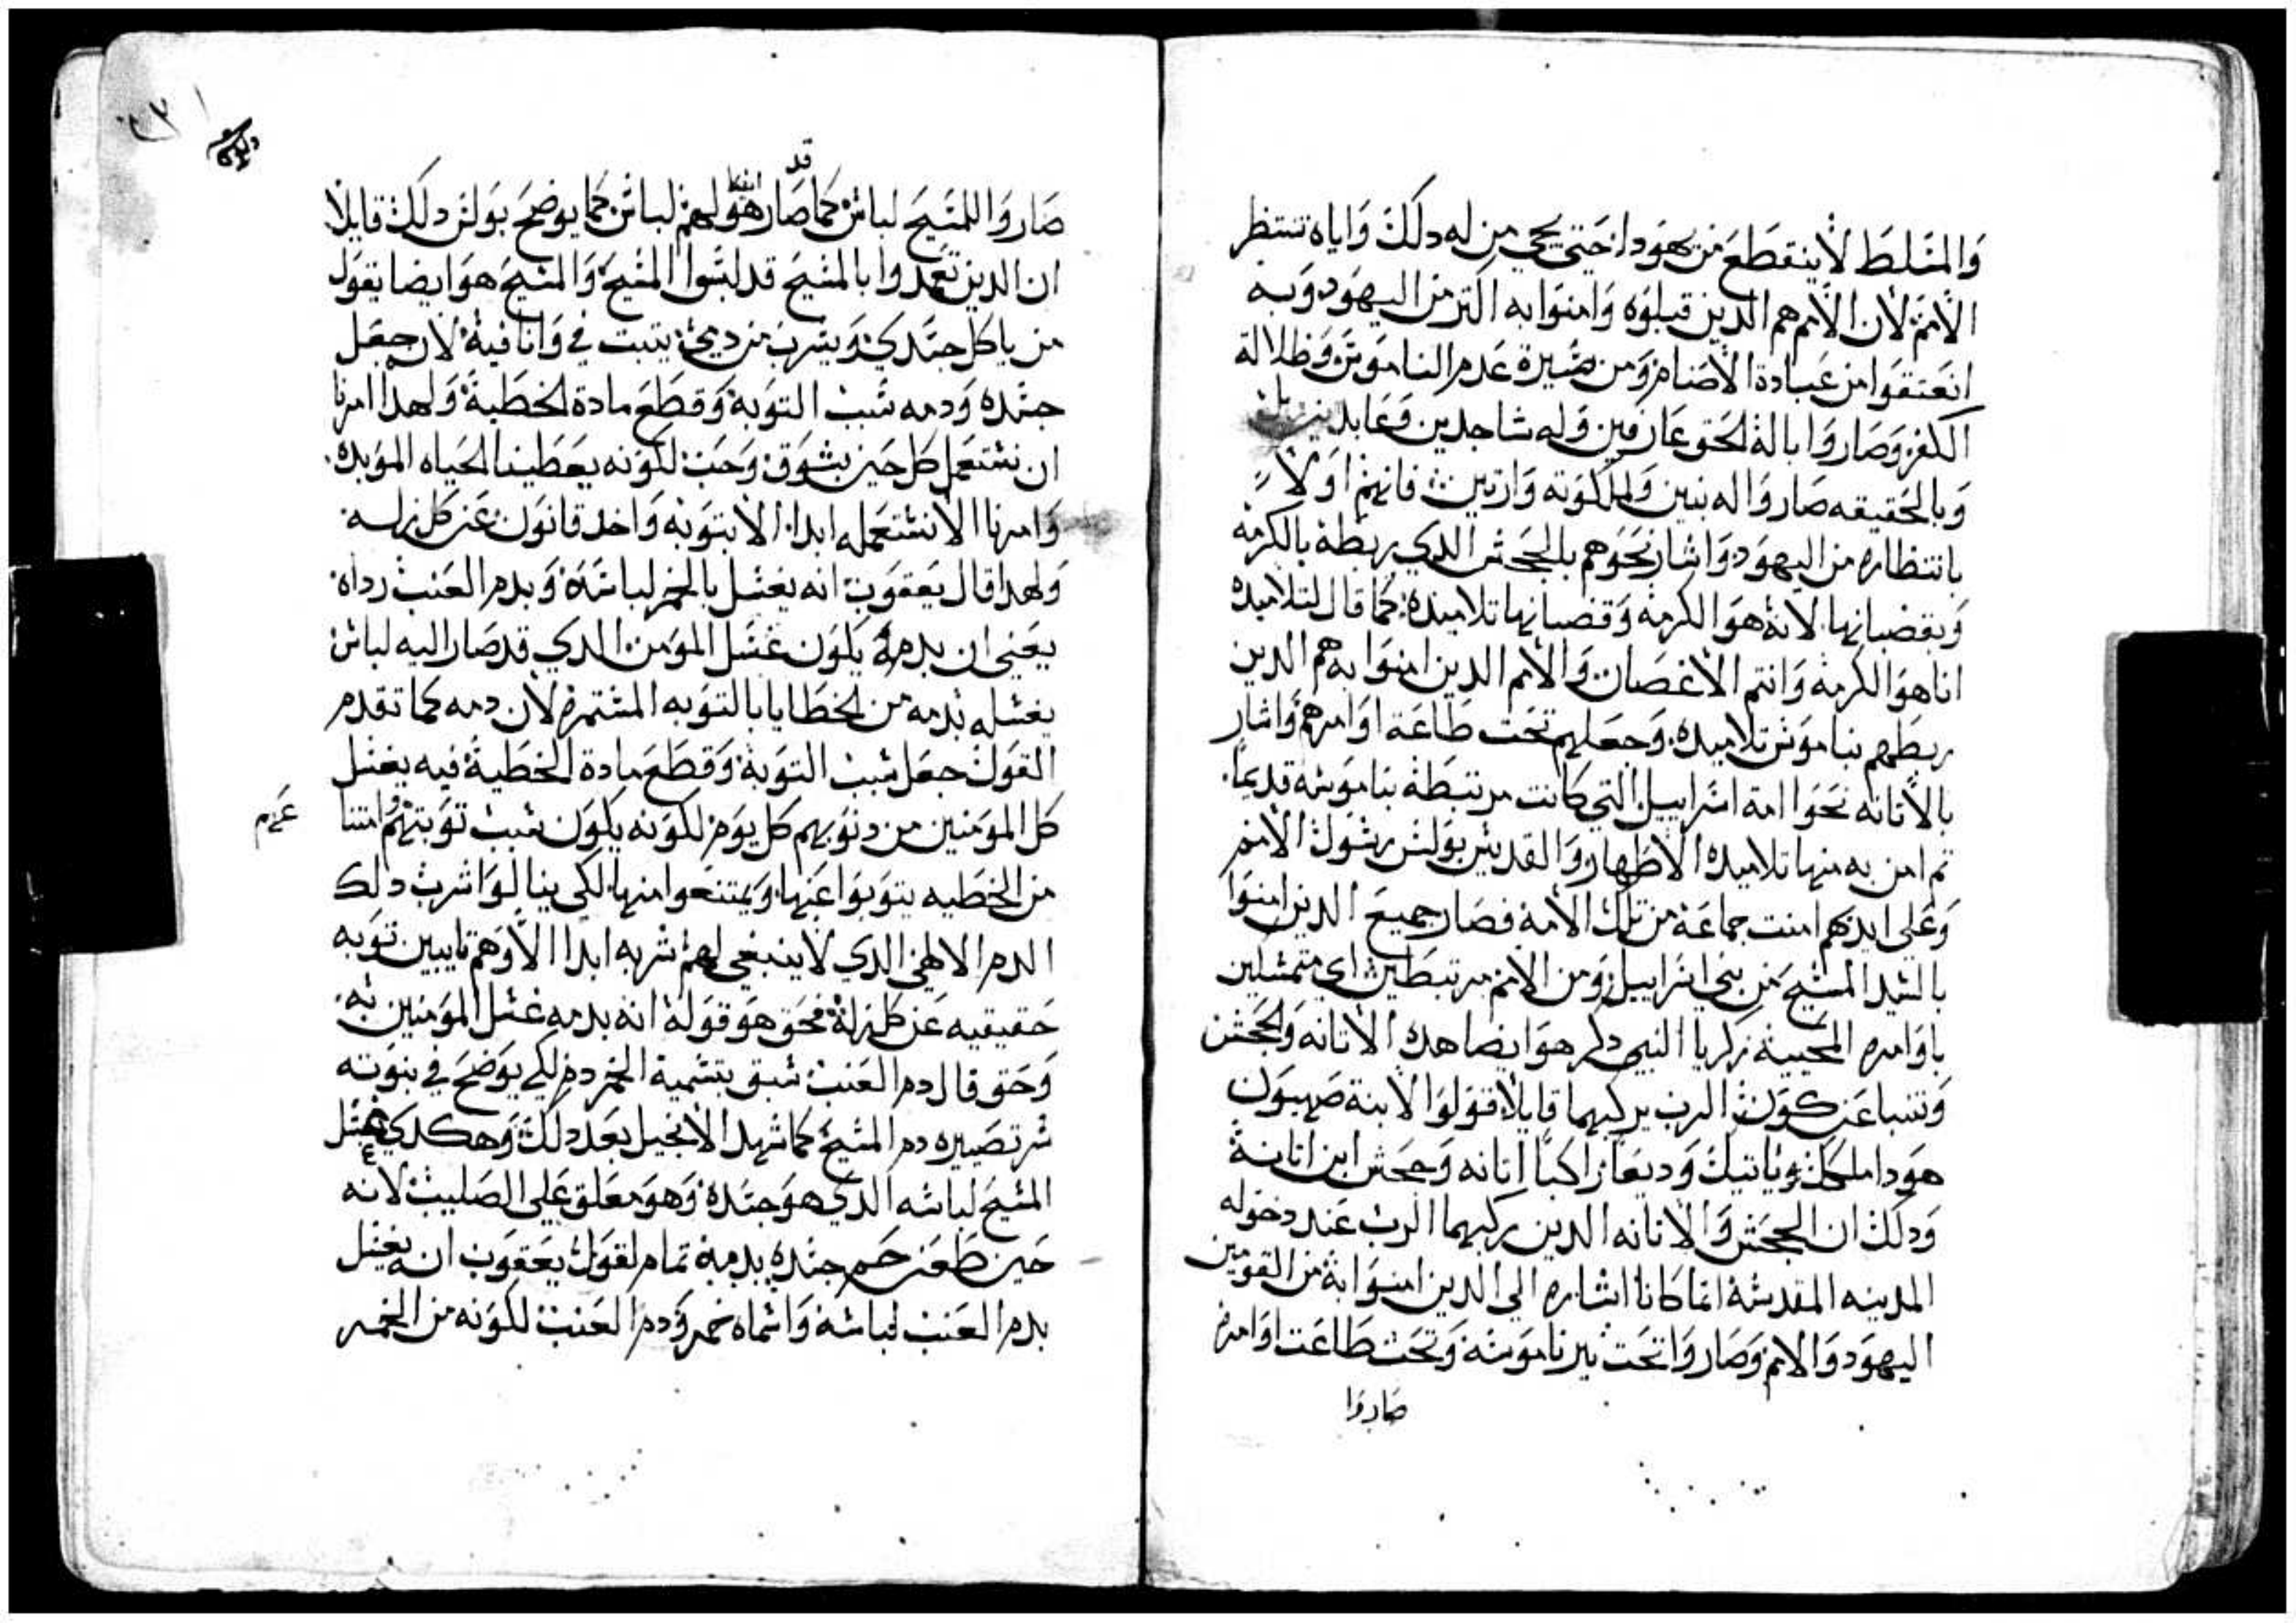 والمسلط لا ينقطع من يهودا حتى يجي من له دلك واياه تنتظر
الامم لان الامم هم الدين قبلوه وامنوا به اكتر من اليهود وبه
انعتقوا من عبادة الاصنام ومن سيرة عدم الناموس وظلالة
الكفر وصاروا بالة الحق عارفين وله ساجدين وعابدين
وبالحقيقه صاروا له بنين ولملكوته وارتين فانهم اولا
بانتظاره من اليهود واشار نحوهم بالجحش الدي ربطه بالكرمة
وبقضبانها لانه هو الكرمة وقضبانها تلاميده كما قال لتلاميده
انا هو الكرمه وانتم الاغصان والامم الدين امنوا به هم الدين
ربطهم بناموس تلاميده وجعلهم تحت طاعة اوامرهم واشار
بالاتانه نحوا امة اسراييل التي كانت مرتبطة بناموسه قديما
تم امن به منها تلاميده الاطهار والقديس بولس رسول الامم
وعلى ايديهم امنت جماعة من تلك الامة فصار جميع الدين امنوا
بالسيد المسيح من بني اسراييل ومن الامم مرتبطين اي متمسكين
باوامره المحيية زكريا النبي دكر هو ايضا هده الاتانه والجحش
وتنبا عن كون الرب يركبهما قايلا قولوا لابنة صهيون
هودا ملكك ياتيك وديعا راكبا اتانه وجحش ابن اتانة
ودلك ان الجحش والاتانه الدين ركبهما الرب عند دخوله
المدينه المقدسة انما كانا اشاره الي الدين امنوا به من القومين
اليهود والامم وصاروا تحت نير ناموسه وتحت طاعت اوامره
صاروا
صاروا للمسيح لباس كما قد صار هو ايضا لهم لباس كما يوضح بولس دلك قايلا
ان الدين تعمدوا بالمسيح قد لبسوا المسيح والمسيح هو ايضا يقول
من ياكل جسدي ويشرب من دمي يتبت في وانا فيه لان جعل
جسده ودمه سبب التوبة وقطع مادة الخطية ولهدا امرنا
ان نستعمل كل حين بشوق وحب لكونه يعطينا الحياه الموبده
وامرنا الا نستعمله ابدا الا بتوبه واخد قانون عن كل زله
ولهدا قال يعقوب انه يغسل بالخمر لباسه وبدم العنب رداه
يعني ان بدمه يكون غسل المومن الدي قد صار اليه لباس
يغسله بدمه من الخطايا بالتوبه المستمرة لان دمه كما تقدم
القول جعل سبب التوبة وقطع مادة الخطية فيه يغسل
كل المومنين من دنوبهم كل يوم لكونه يكون سبب توبتهم وامتنا عهم
من الخطيه يتوبوا عنها ويمتنعوا منها لكي ينالوا شرب دلك
الدم الالهي الدي لا ينبغي لهم شربه ابدا الا وهم تايبين توبه
حقيقيه عن كل زلة فحق هو قوله انه بدمه غسل المومنين به
وحق قال دم العنب سبق بتسمية الخمر دم لكي يوضح في نبوته
سر تصييره دم المسيح كما شهد الانجيل بعد دلك وهكدي غسل
المسيح لباسه الدي هو جسده وهو معلق على الصليب لانه
حين طعن حمر جسده بدمه تمام لقول يعقوب انه يغسل
بدم العنب لباسه واسماه خمر ودم العنب لكونه من الخمر